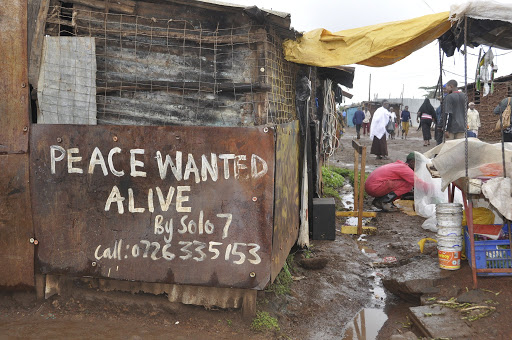 PEACE WANTED
ALIVE
By Solo 7
call: 0726335153